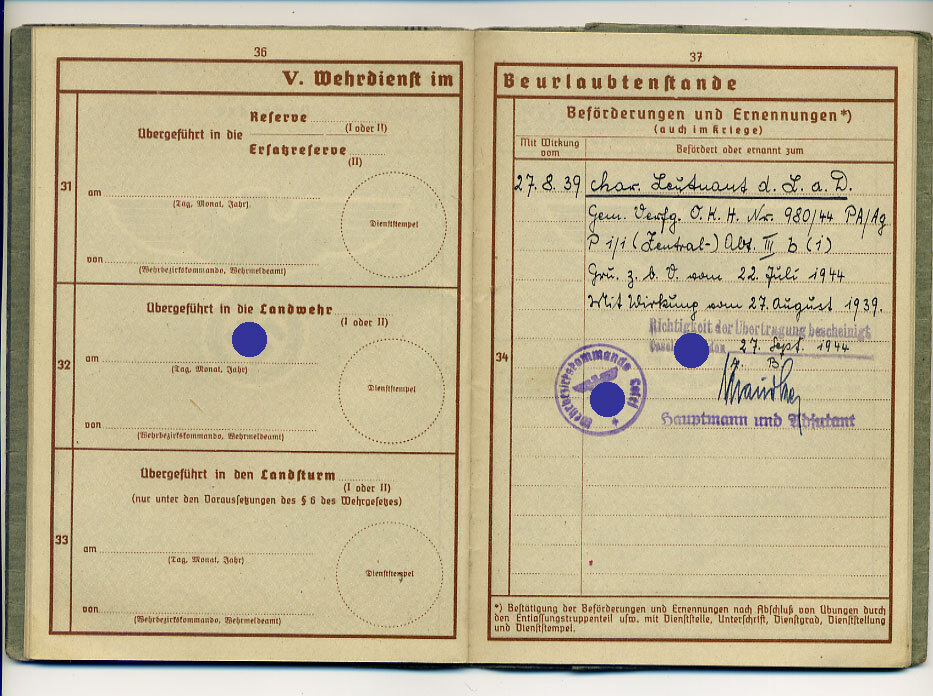 36
V. Wehrdienst im
31
Reserve
Übergeführt in die (I oder II)
Ersatzreserve
(II)
am
(Tag, Monat, Jahr)
Dienststempel
von
(Wehrbezirkskommando, Wehrmeldeamt)
32
Übergeführt in die Landwehr
(I oder II)
am
(Tag, Monat, Jahr)
Dienststempel
von
(Wehrbezirkskommando, Wehrmeldeamt)
33
Übergeführt in den Landsturm
(I oder II)
(nur unter den Voraussetzungen des § 6 des Wehrgesetzes)
am
(Tag, Monat, Jahr)
Dienststempel
von
(Wehrbezirkskommando, Wehrmeldeamt)
37
Beurlaubtenstande
Beförderungen und Ernennungen*)
(auch im Kriege)
Mit Wirkung vom
Befördert oder ernannt zum
34
27.8.39 char. Leutnant d. L. a. D.
Gem. Verfg. O. K. H. Nr. 980/44 PA/Ag
P 1/1 (Zentral-) Abt. III b (1)
Gru. z. b. V. vom 22. Juli 1944
Mit Wirkung vom 27. August 1939.
Richtigkeit der Übertragung bescheinigt
27. Sept. 1944
Wehrbezirkskommando
Hauptmann und Adjutant
*) Bestätigung der Beförderungen und Ernennungen nach Abschluß von Übungen durch
den Entlassungstruppenteil usw. mit Dienststelle, Unterschrift, Dienstgrad, Dienststellung
und Dienststempel.